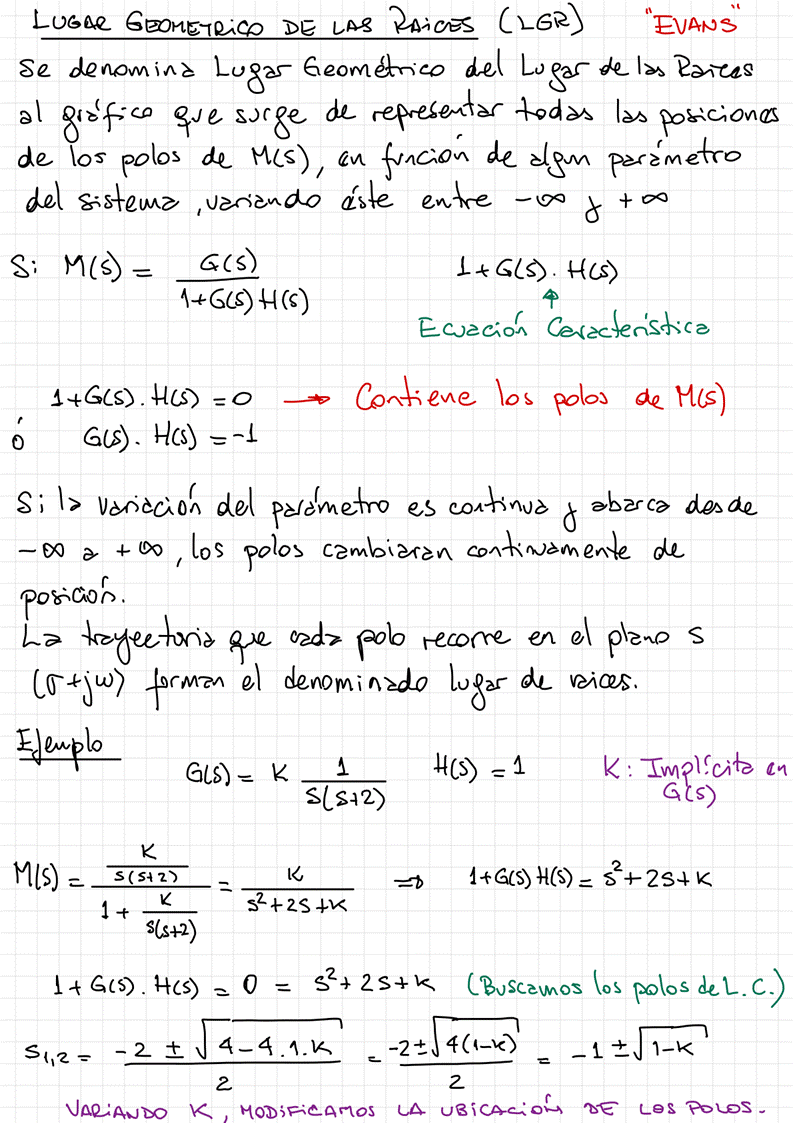 LUGAR GEOMETRICO DE LAS RAICES (LGR) "EVANS"
Se denomina Lugar Geométrico del Lugar de las Raices
al gráfico que surge de representar todas las posiciones
de los polos de M(s), en función de algun parámetro
del sistema, variando éste entre -∞ y +∞
Si M(s) = G(s) / (1+G(s)H(s))    1+G(s). H(s)
Ecuación Característica
1+G(s). H(s) = 0 → Contiene los polos de M(s)
ó G(s). H(s) = -1
Si la variación del parámetro es continua y abarca desde
-∞ a +∞, los polos cambiaran continuamente de
posición.
La trayectoria que cada polo recorre en el plano s
(σ+jω) forman el denominado lugar de raices.
Ejemplo
G(s) = K 1 / (s(s+2))    H(s) = 1    K: Implícita en
G(s)
M(s) = (K / (s(s+2))) / (1 + K / (s(s+2))) = K / (s²+2s+K) ⇒ 1+G(s)H(s) = s²+2s+K
1+G(s). H(s) = 0 = s²+2s+K (Buscamos los polos de L.C.)
s1,2 = (-2 ± √(4-4.1.K)) / 2 = (-2±√(4(1-K))) / 2 = -1 ± √(1-K)
VARIANDO K, MODIFICAMOS LA UBICACIÓN DE LOS POLOS.